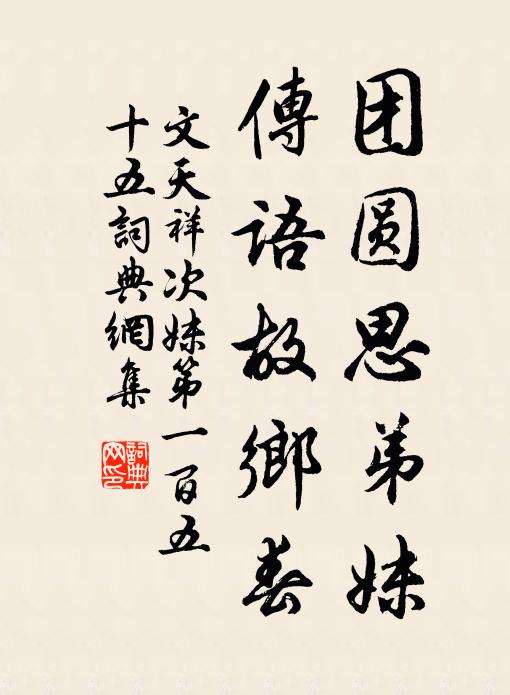 团圆思弟妹
傳語故鄉春
文天祥次妹第一百五
十五詞典網集
詞典
网印